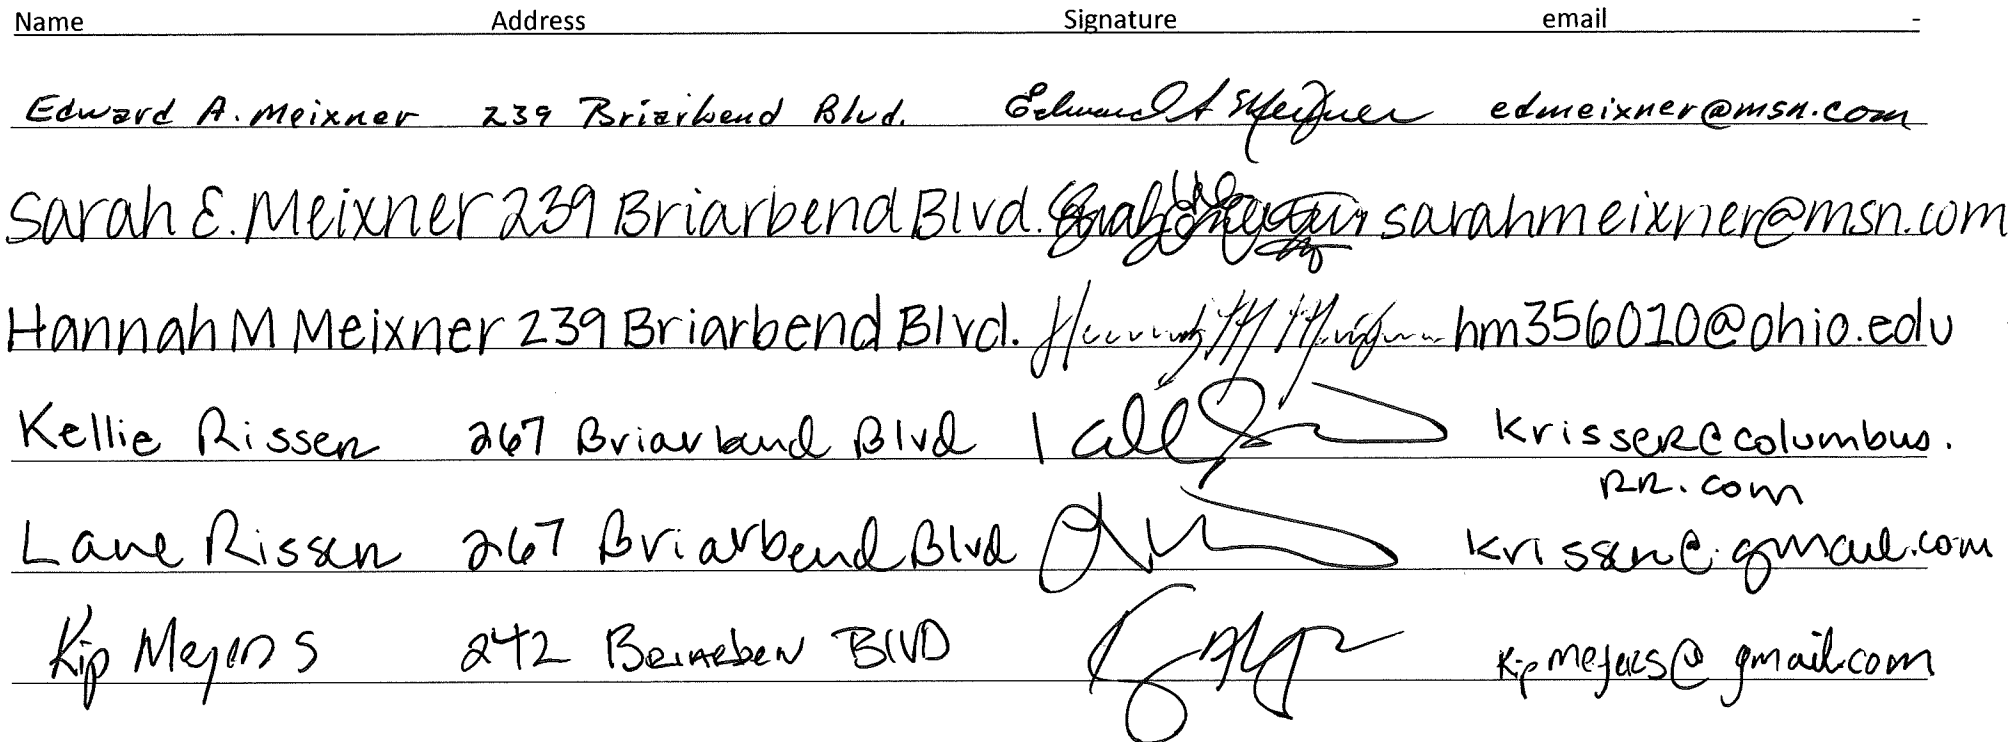 Name Address Signature email -
Edward A. Meixner 239 Briarbend Blvd. Edward A Meixner edmeixner@msn.com
Sarah E. Meixner 239 Briarbend Blvd. sarahmeixner@msn.com
Hannah M Meixner 239 Briarbend Blvd. Hannah M Meixner hm356010@ohio.edu
Kellie Rissen 267 Briarbend Blvd krissen@columbus.
RR.com
Lane Rissen 267 Briarbend Blvd krissen@gmail.com
Kip Meyers 242 BLVD kipmeyers@gmail.com